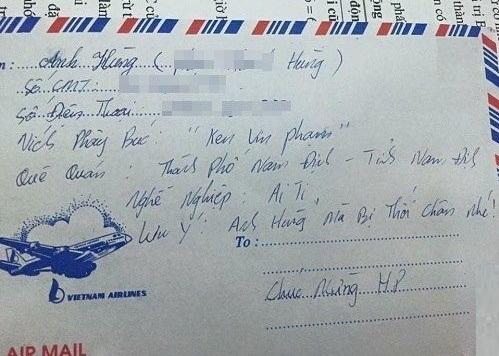 n : Anh Hùng ( Hùng )
Số CMT :
Số Điện Thoại :
Viết Phong Bao : "Ken Van Pham"
Quê Quán : Thành Phố Nam Định - Tỉnh Nam Định
Nghề Nghiệp : Ai Ti
Lưu Ý : Anh Hùng Mà Bị Thối Chân Nhé!
To :
Chúc Mừng H.P
VIETNAM AIRLINES
AIR MAIL